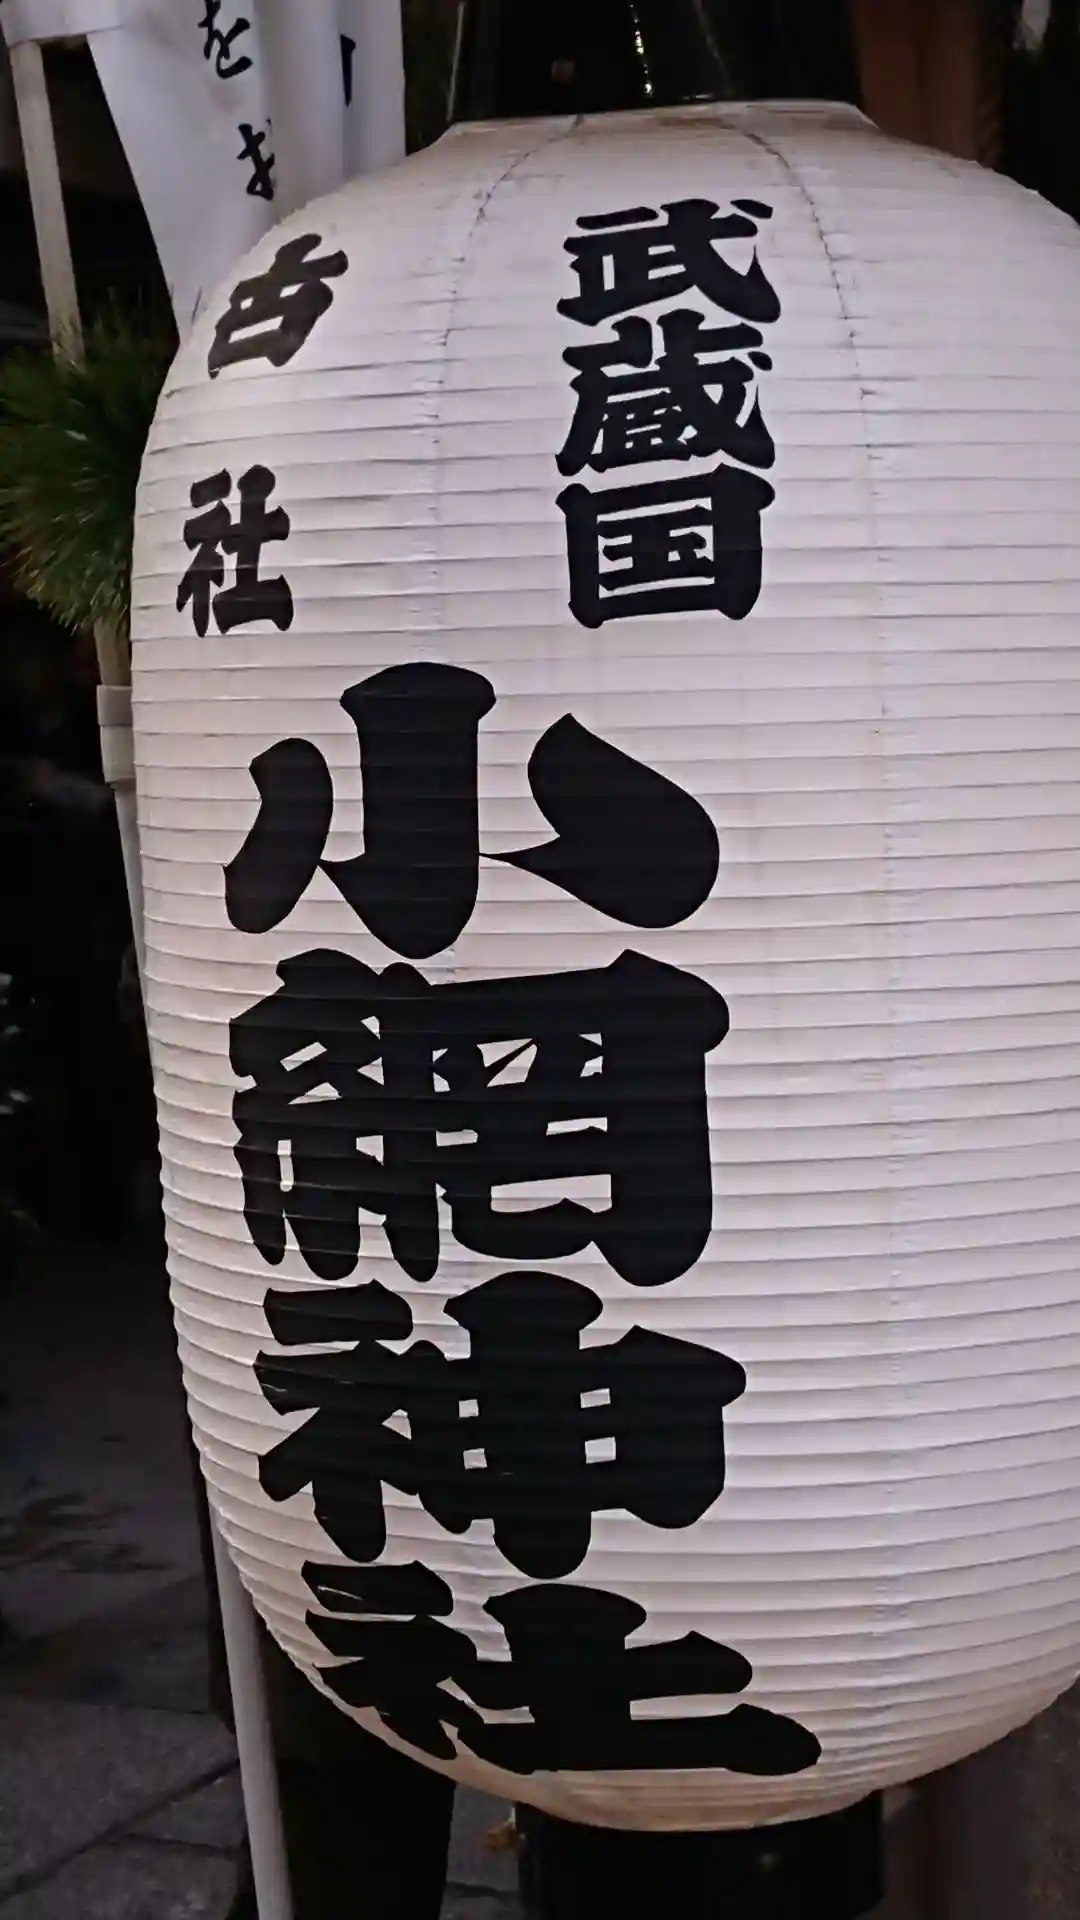 武蔵国
古社
小網神社
をお